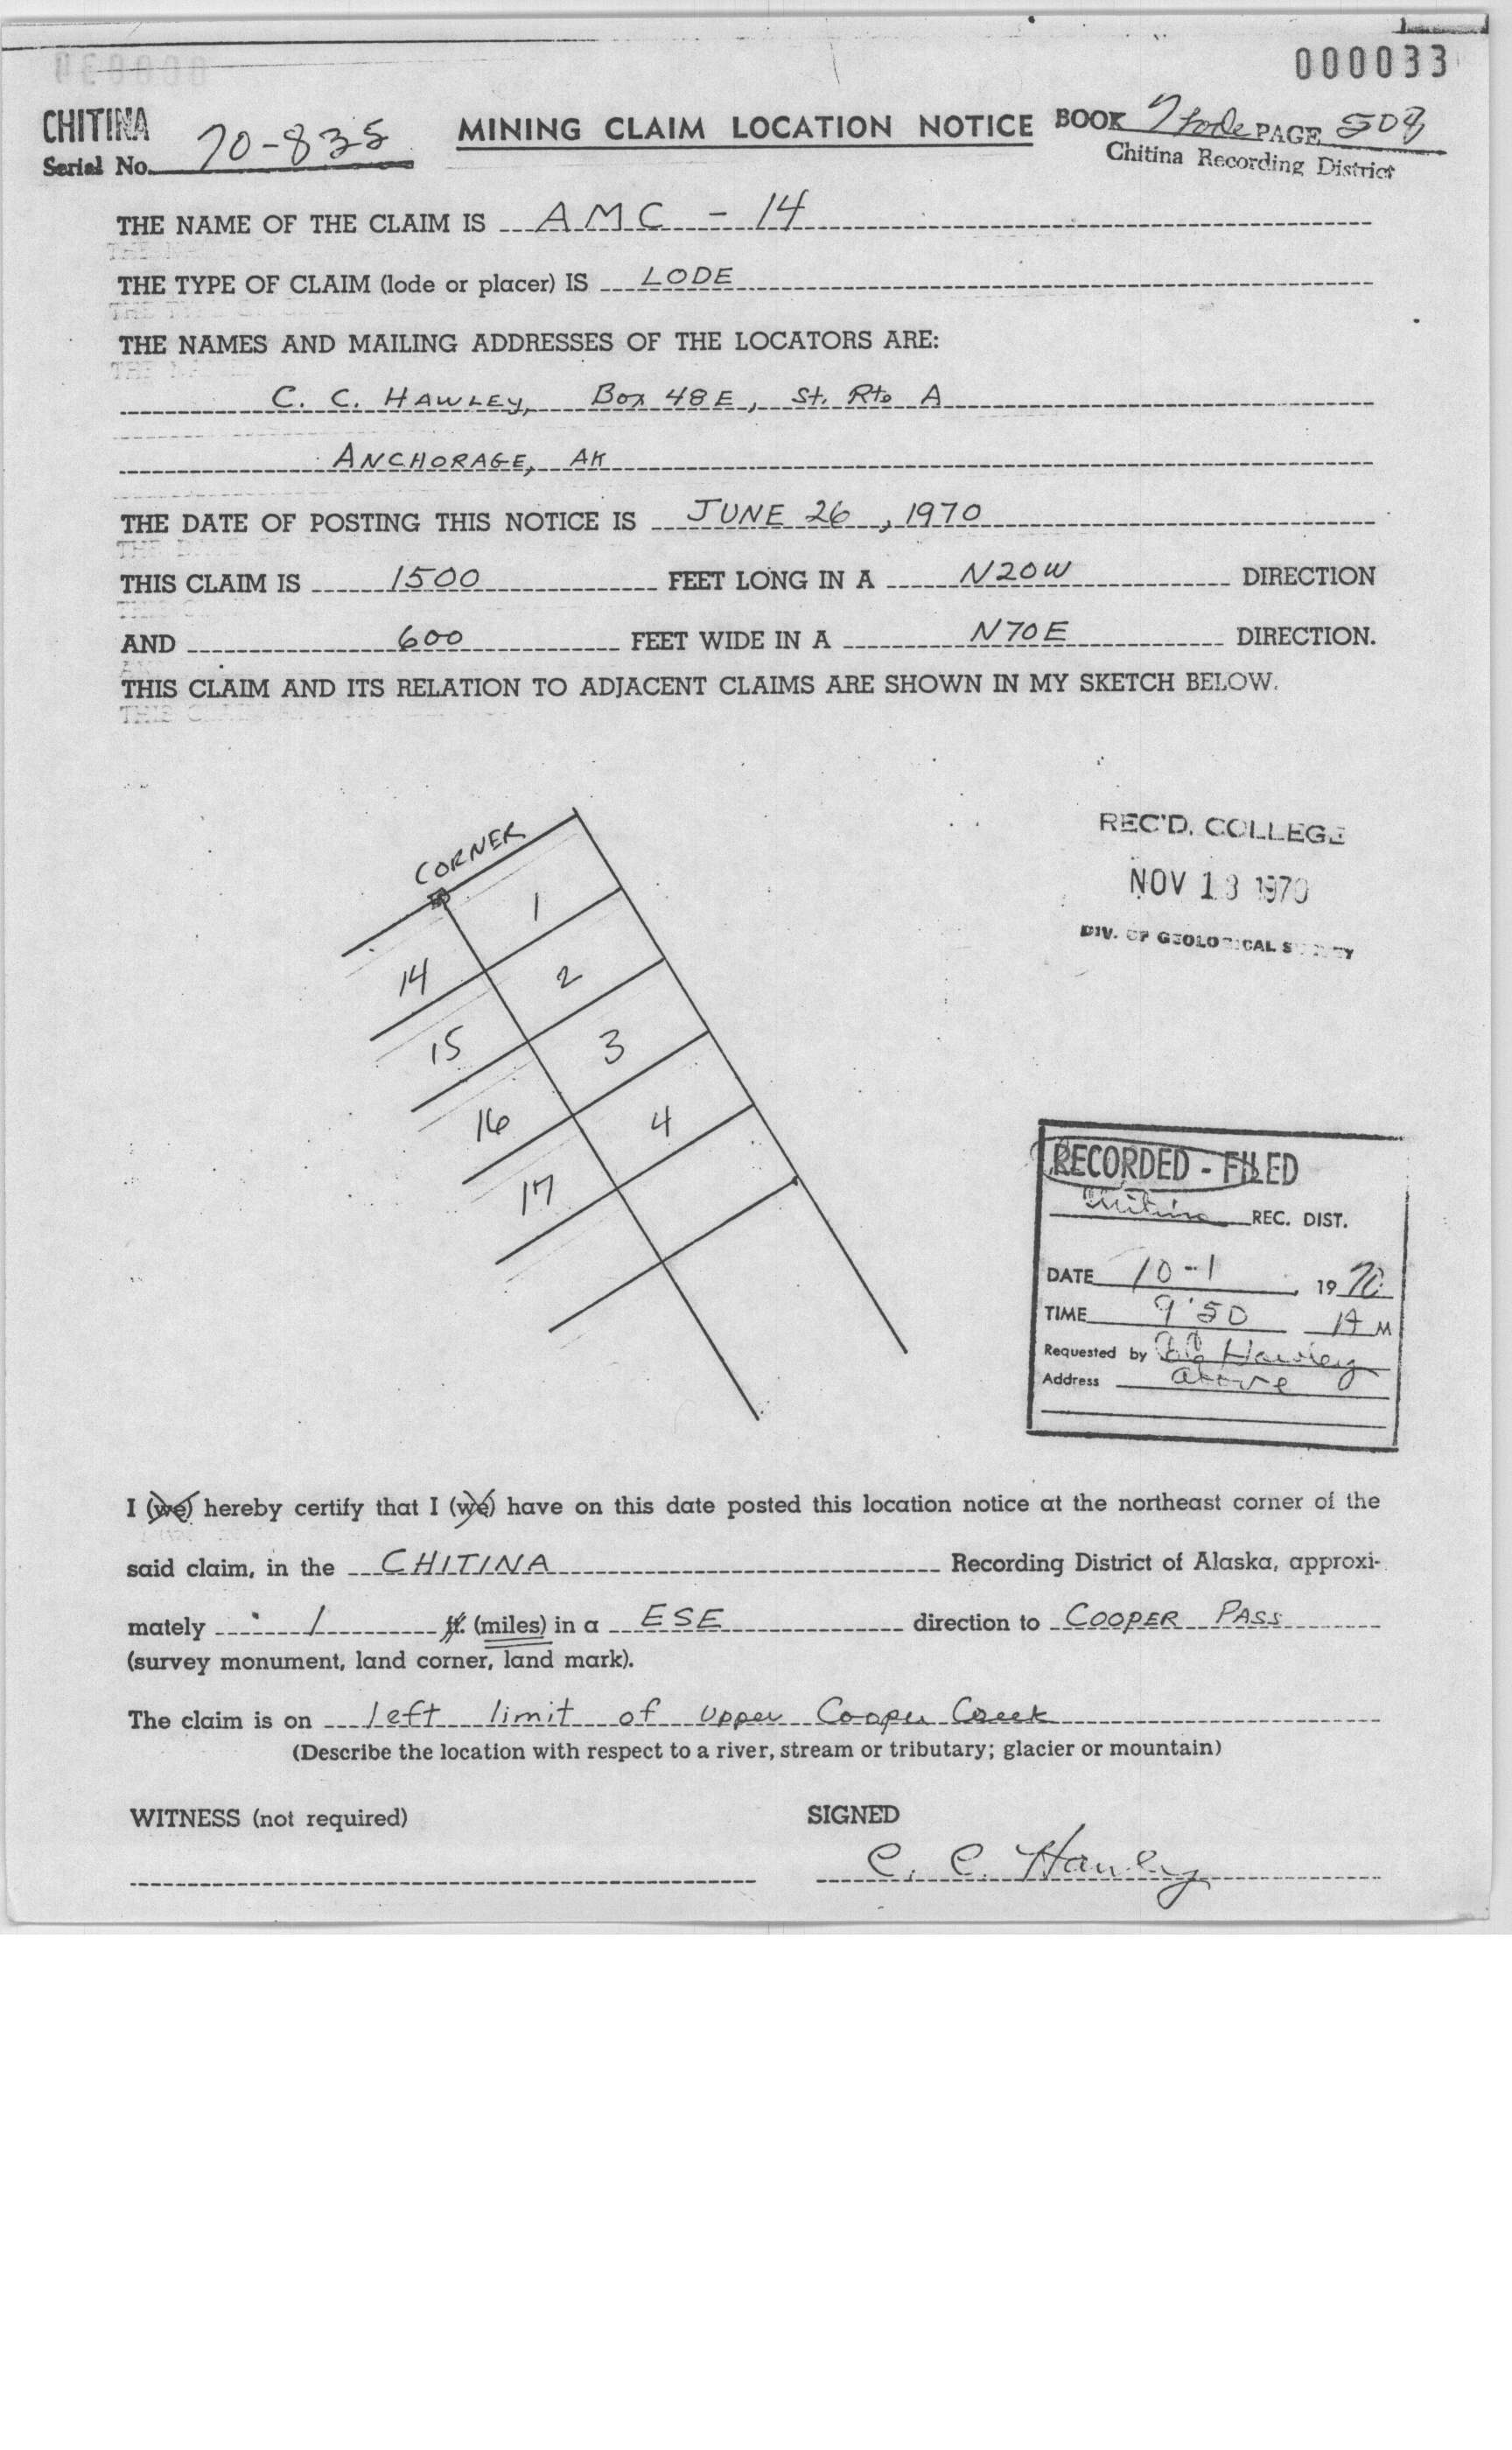 000033
CHITINA
Serial No. 70-835
MINING CLAIM LOCATION NOTICE
BOOK 7 Lode PAGE 509
Chitina Recording District
THE NAME OF THE CLAIM IS AMC - 14
THE TYPE OF CLAIM (lode or placer) IS LODE
THE NAMES AND MAILING ADDRESSES OF THE LOCATORS ARE:
C. C. HAWLEY, Box 48E, St. Rte A
ANCHORAGE, AK
THE DATE OF POSTING THIS NOTICE IS JUNE 26, 1970
THIS CLAIM IS 1500 FEET LONG IN A N20W DIRECTION
AND 600 FEET WIDE IN A N70E DIRECTION.
THIS CLAIM AND ITS RELATION TO ADJACENT CLAIMS ARE SHOWN IN MY SKETCH BELOW.
CORNER
1
14
2
15
3
16
4
17
REC'D. COLLEGE
NOV 13 1970
DIV. OF GEOLOGICAL SURVEY
RECORDED - FILED
Chitina REC. DIST.
DATE 10-1, 1970
TIME 9:50 A M
Requested by CC Hawley
Address above
I (we) hereby certify that I (we) have on this date posted this location notice at the northeast corner of the
said claim, in the CHITINA Recording District of Alaska, approxi-
mately 1 ft. (miles) in a ESE direction to COOPER PASS
(survey monument, land corner, land mark).
The claim is on left limit of Upper Cooper Creek
(Describe the location with respect to a river, stream or tributary; glacier or mountain)
WITNESS (not required)
SIGNED
C. C. Hawley